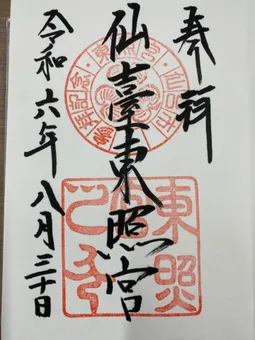 奉拝
仙臺東照宮
令和六年八月三十日
東照